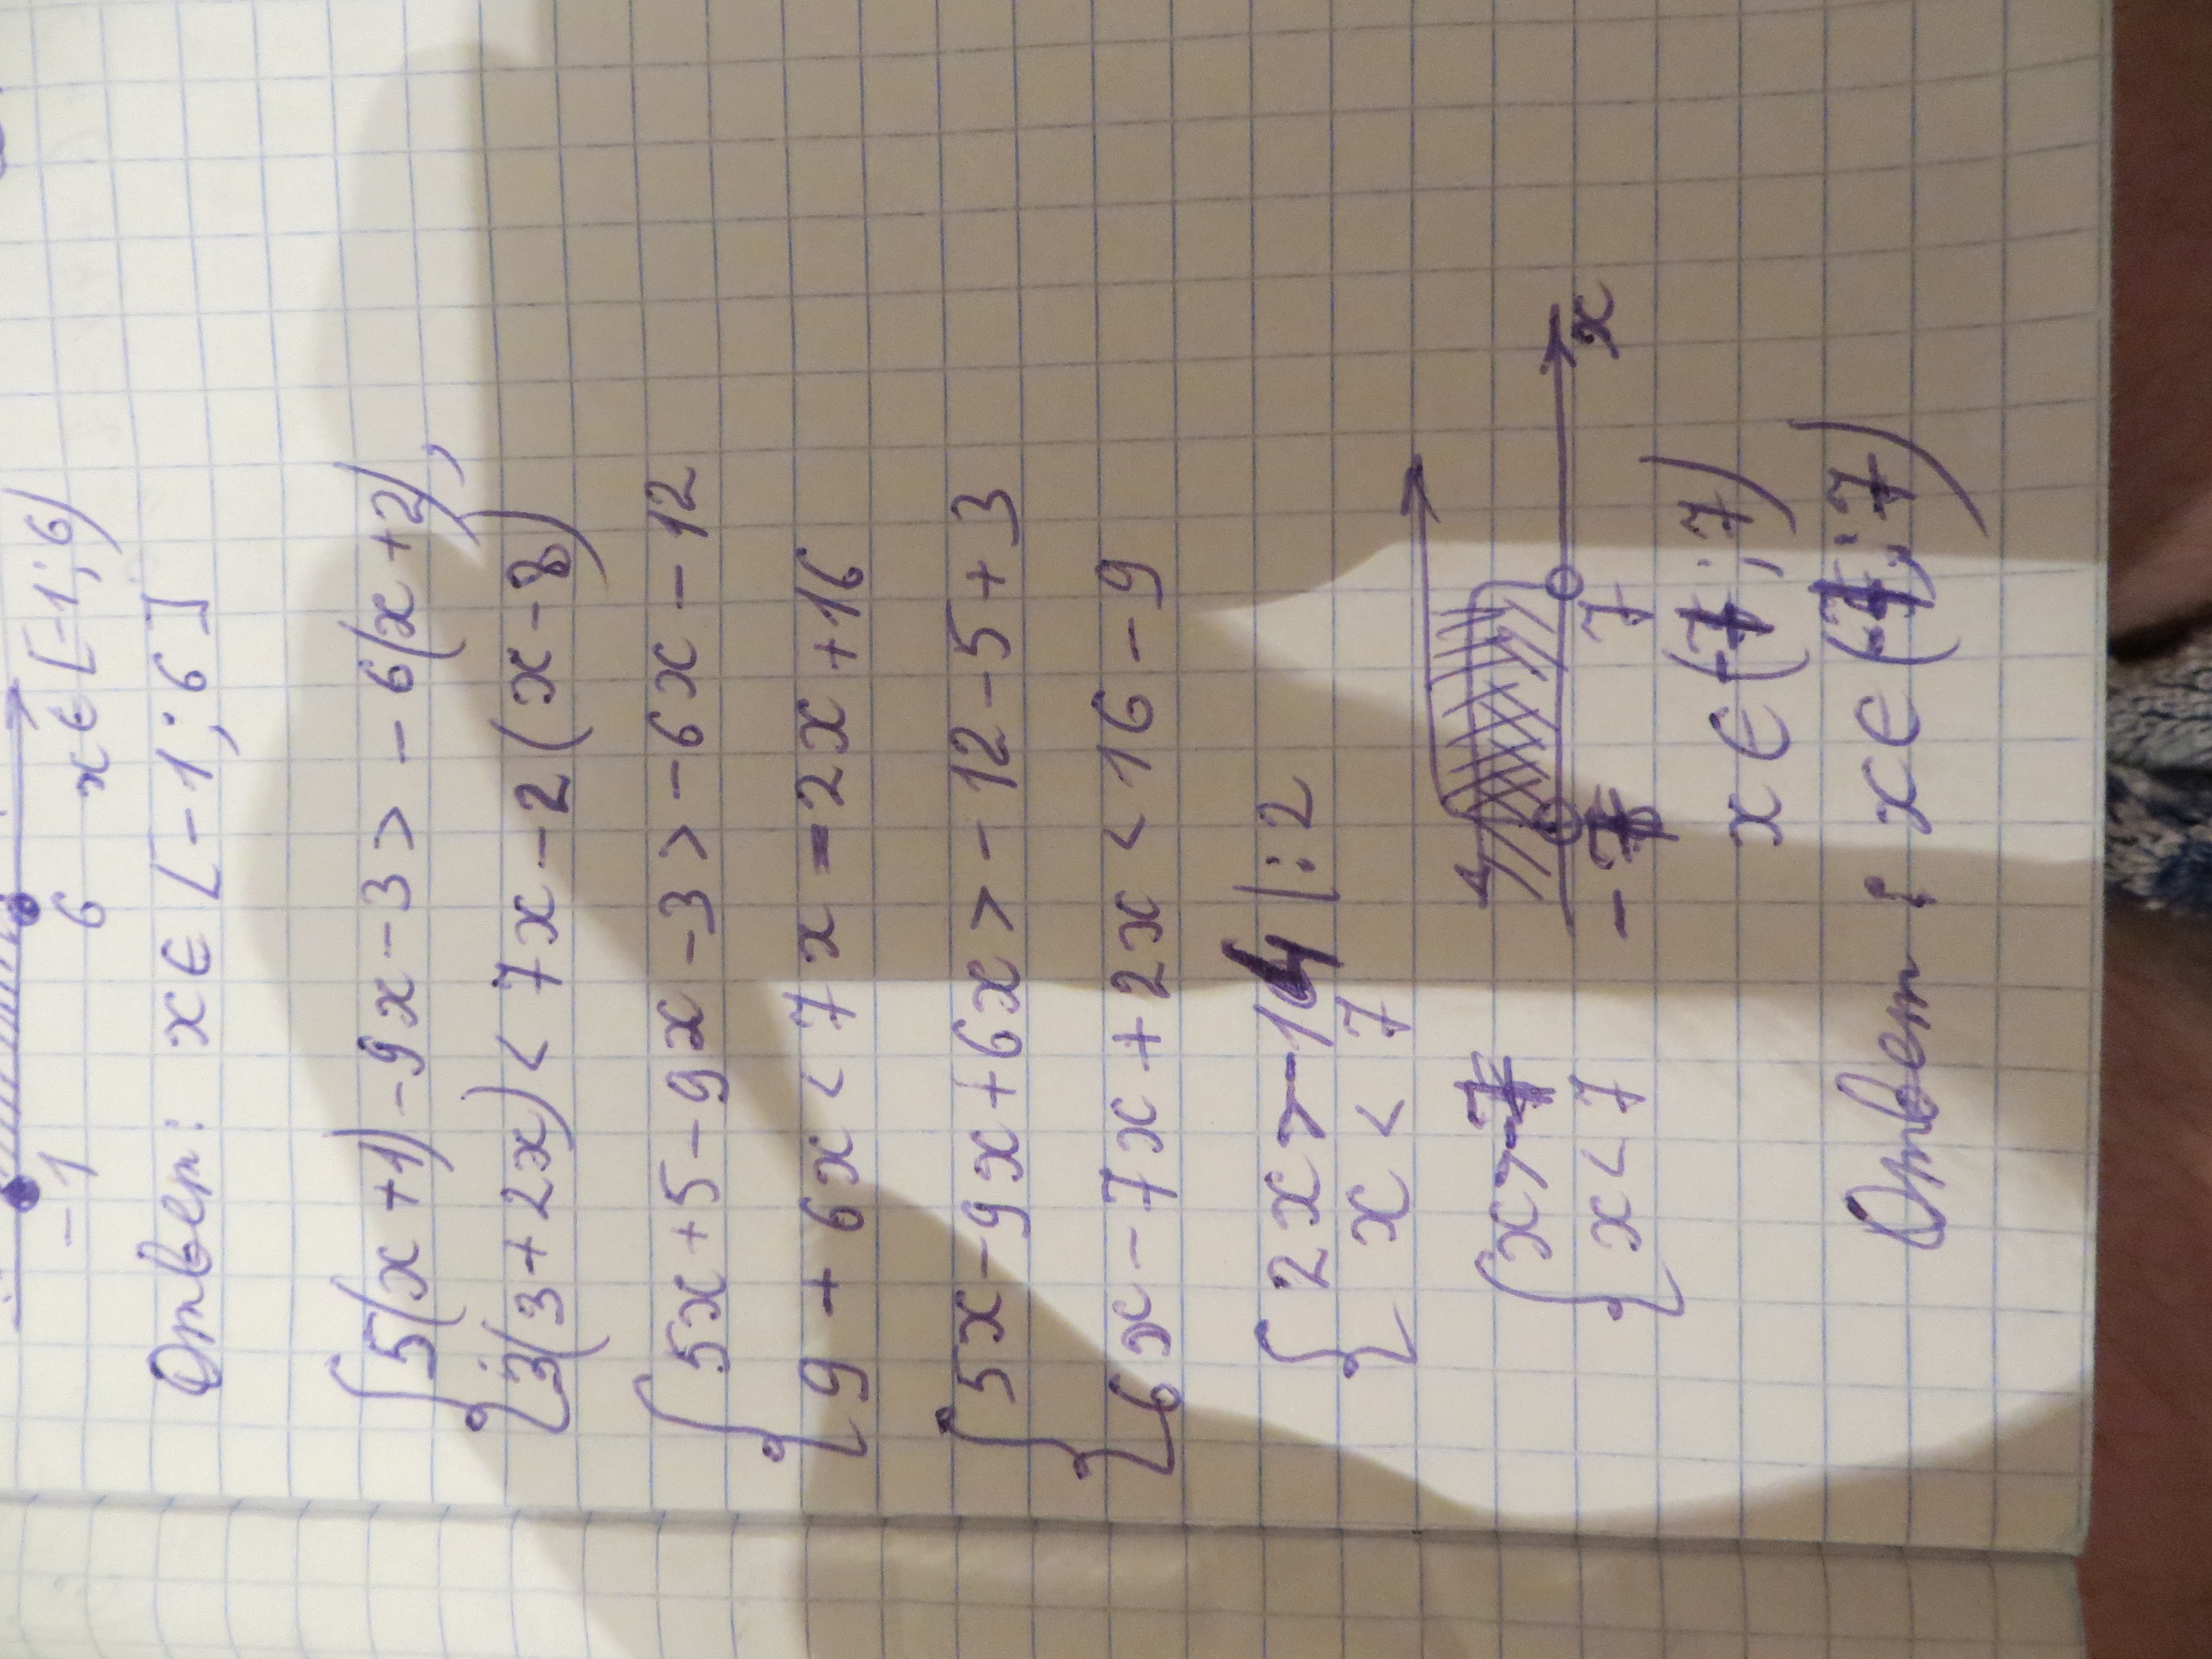 -1 6 x∈[-1;6)
Ответ: x∈[-1;6]
5(x+1)-9x-3>-6(x+2),
3(3+2x)<7x-2(x-8)
5x+5-9x-3>-6x-12
9+6x<7x=2x+16
5x-9x+6x>-12-5+3
6x-7x+2x<16-9
2x>-14 |:2
x<7
x>-7
x<7
-7 7 x
x∈(-7;7)
Ответ: x∈(-7;7)